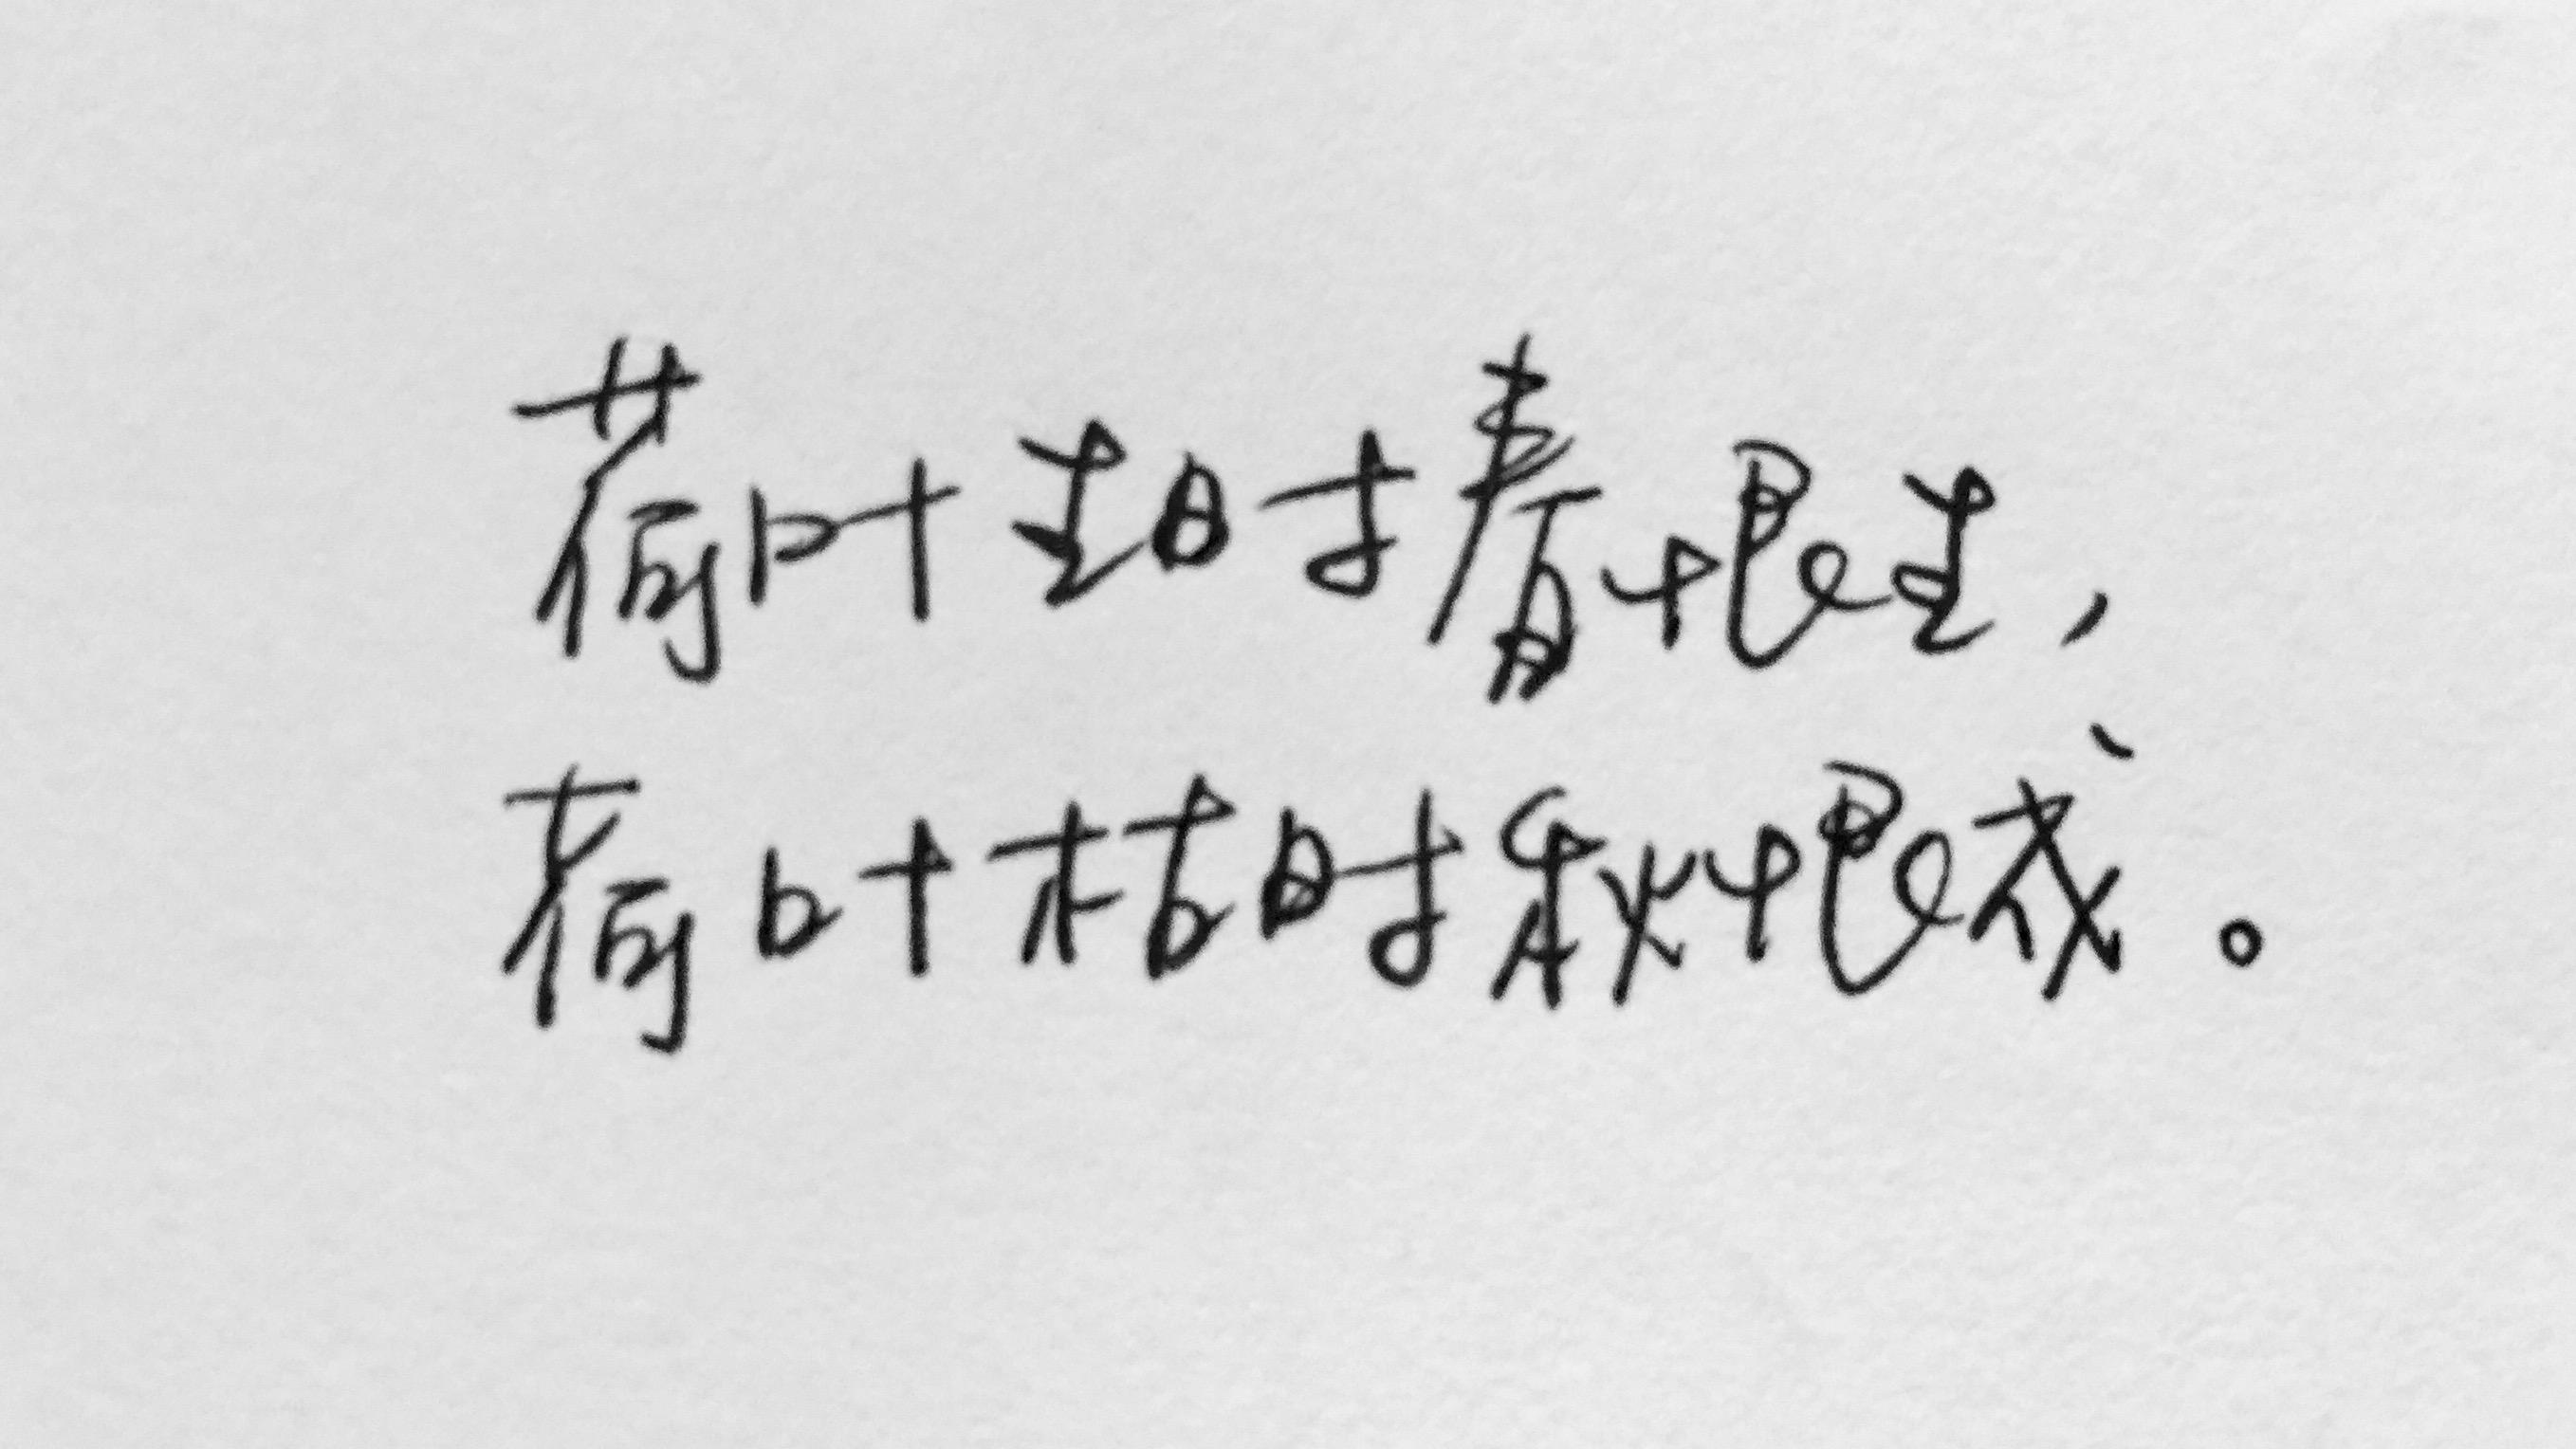 荷叶生时春恨生，
荷叶枯时秋恨成。